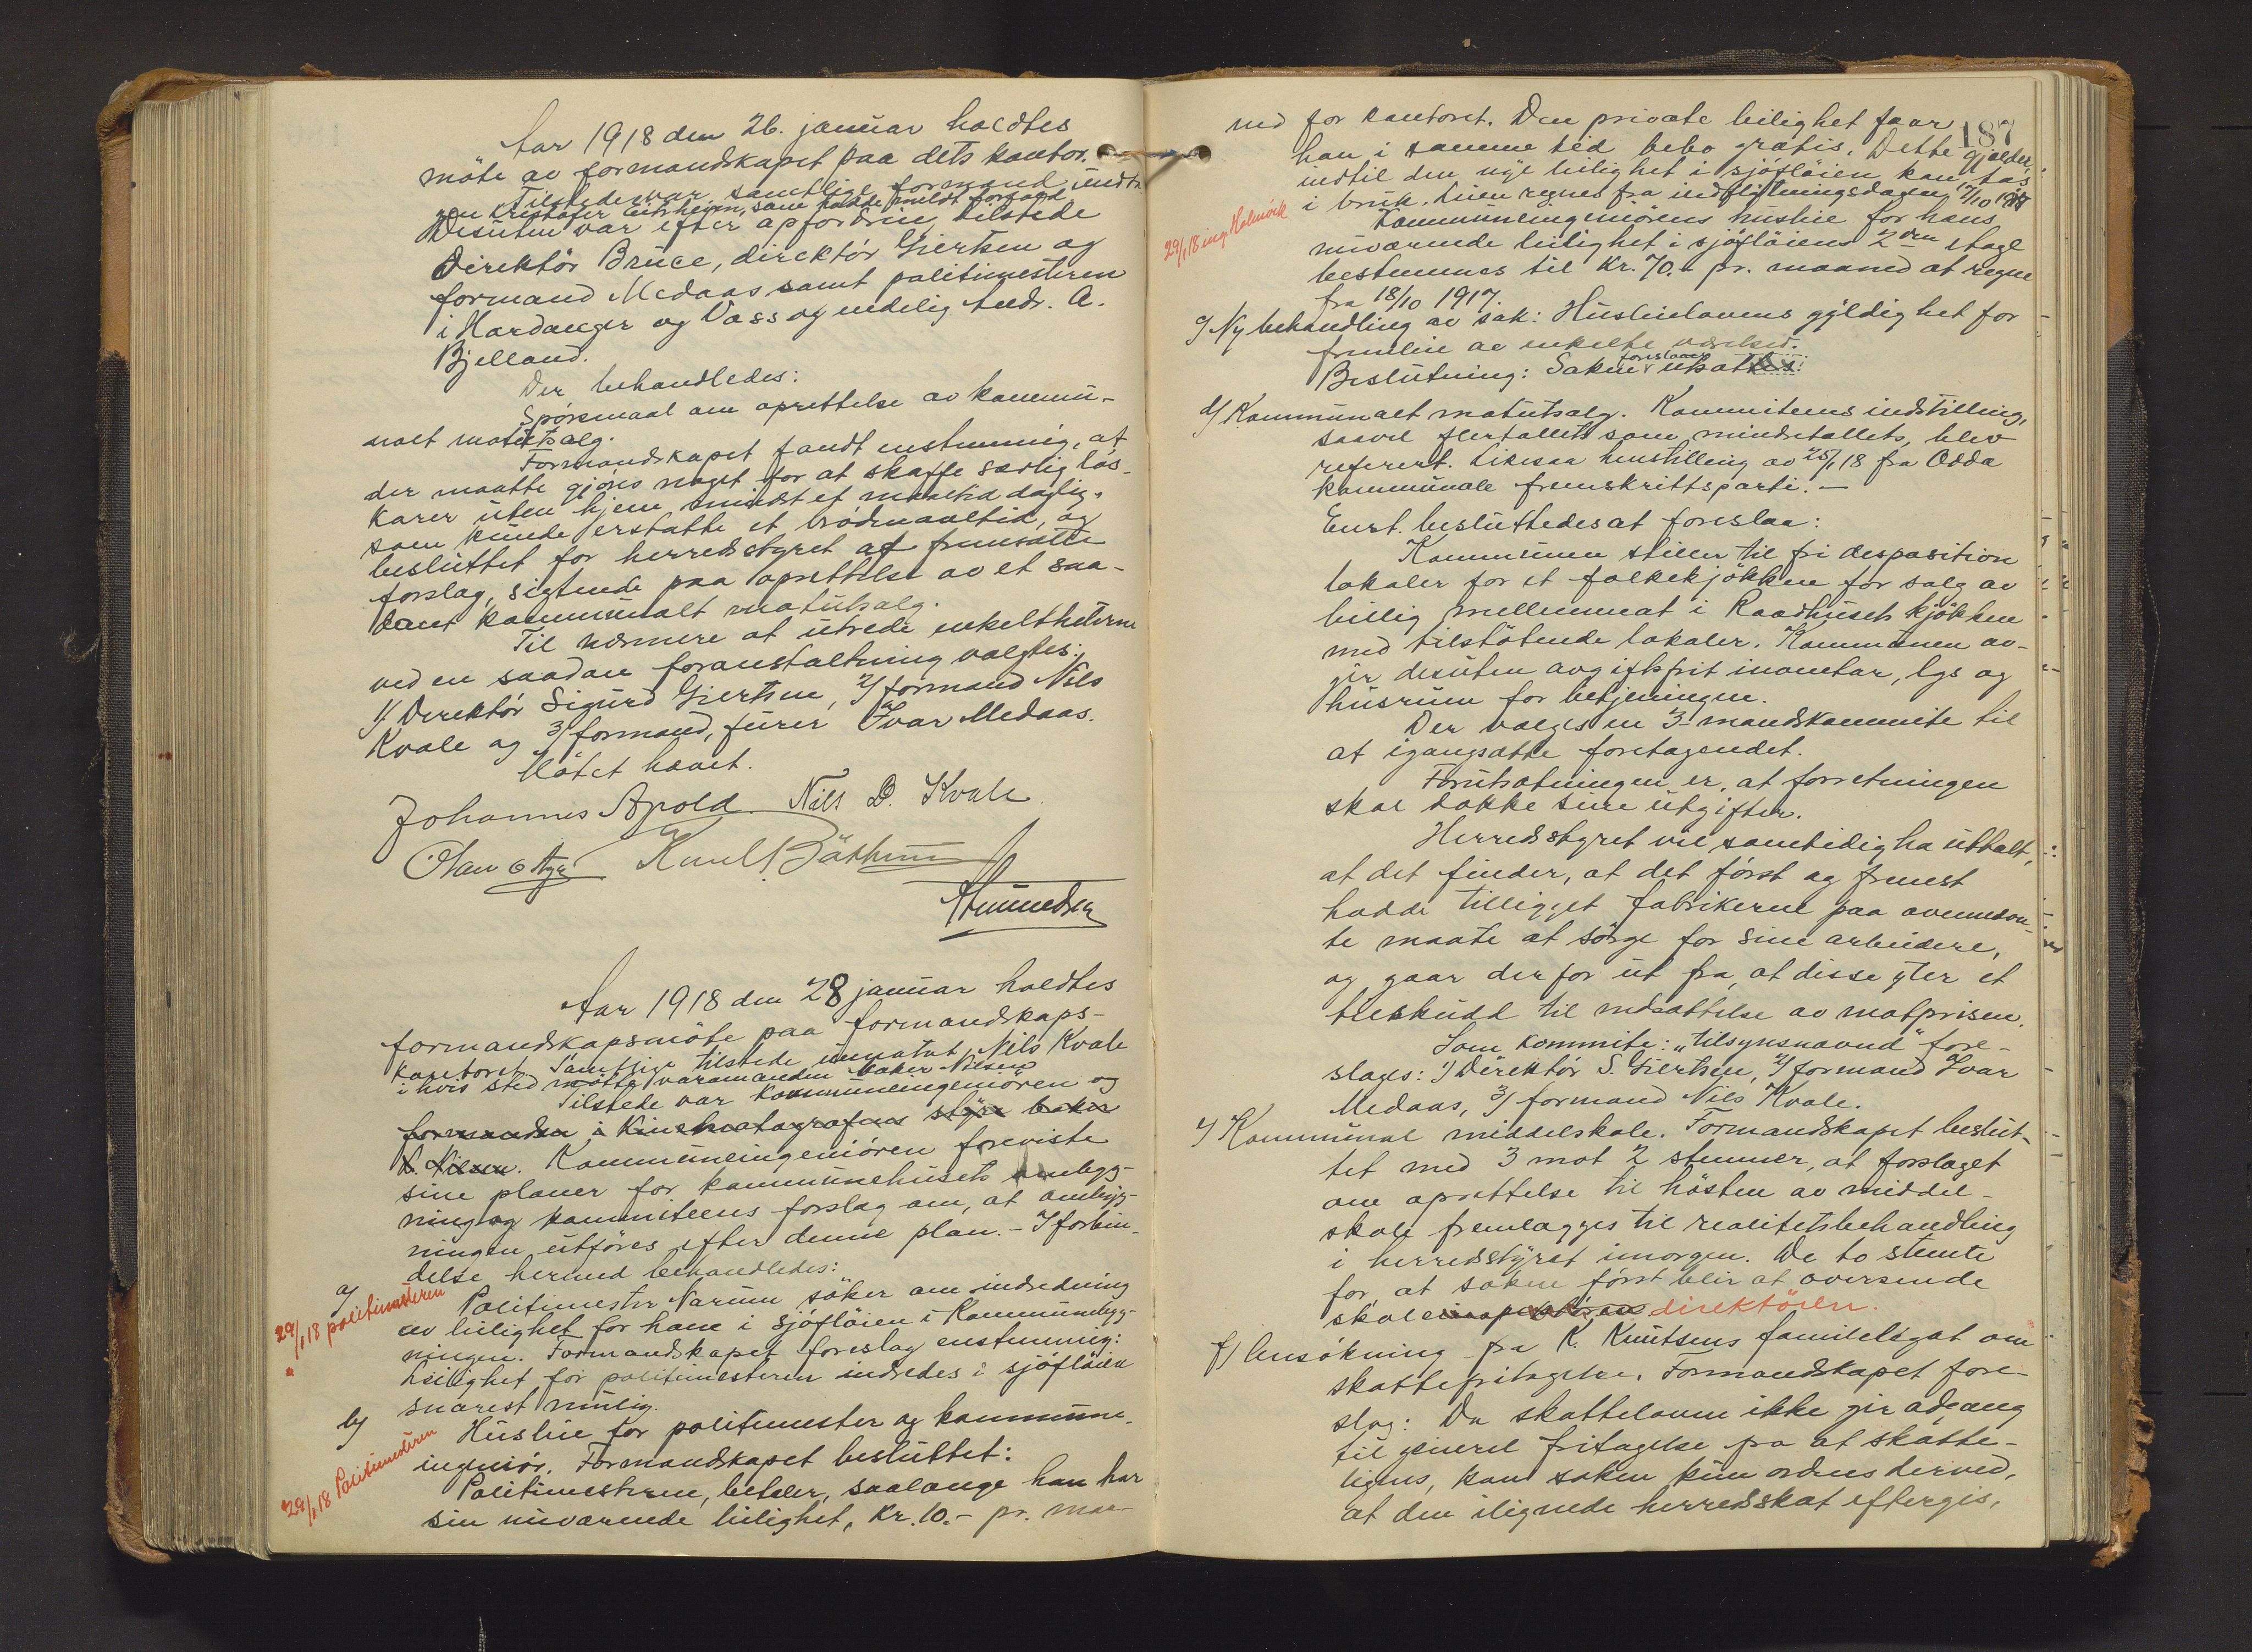 Aar 1918 den 26. januar holdtes
möte av formandskapet paa dets kontor.
Tilstede var samtlige formænd undt.
gen Kristofer Eitrheim, som hadde meldt forfald
Desuten var efter opfordring tilstede
Direktör Bruce, direktör Giertsen og
formand Medaas samt politimesteren
i Hardanger og Voss og endelig Andr. A.
Bjelland.
Der behandledes:
Spörsmaal om oprettelse av kommu-
nalt matutsalg.
Formandskapet fandt enstemmig, at
der maatte gjöres noget for at skaffe særlig lös-
karer uten hjem mindst et maaltid daglig,
som kunde erstatte et brödmaaltid, og
besluttet for herredsstyret at fremsætte
forslag, sigtende paa oprettelse av et saa-
dant kommunalt matutsalg.
Til nærmere at utrede enkelthetene
ved en saadan foranstaltning valgtes:
1/ Direktör Sigurd Giertsen, 2/ formand Nils
Kvale og 3/ formand, furer Ivar Medaas.
Mötet hævet.
Johannes Apold Nils D. Kvale
Olav O Aga Knut Böthun
Amundsen
Aar 1918 den 28 januar holdtes
formandskapsmöte paa formandskaps-
kontoret. Samtlige tilstede undtat Nils Kvale
i hvis sted mötte varamanden Baker Nilsen
Tilstede var kommuneingeniören og
formanden i Kinematografens styre baker
N. Nilsen. Kommuneingeniören foreviste
sine planer for kommunehusets ombyg-
ning og kommiteens forslag om, at ombyg-
ningen utföres efter denne plan. - I forbin-
delse hermed behandledes:
a/ Politimester Narum söker om indredning
29/1 18 politimesteren
av leilighet for ham i sjöflöien i Kommunebyg-
ningen. Formandskapet foreslog enstemmig:
Leilighet for politimesteren indredes i sjöflöien
snarest mulig.
b/ Husleie for politimester og kommune-
ingeniör. Formandskapet besluttet:
29/1 18 Politimesteren
Politimesteren, betaler, saalænge han har
sin nuværende leilighet, Kr. 10.- pr. maa-
187
ned for kontoret. Den private leilighet faar
han i samme tid bebo gratis. Dette gjælder,
indtil den nye leilighet i sjöflöien kan tas
i bruk. Leien regnes fra indflytningsdagen 17/10 1917
29/1 18 ing. Holmvik
Kommuneingeniörens husleie for hans
nuværende leilighet i sjöflöiens 2den etage
bestemmes til Kr. 70.- pr. maaned at regne
fra 18/10 1917.
c/ Ny behandling av sak: Husleielovens gyldighet for
fremleie av enkelte værelser.
Beslutning: Saken foreslaaes utsat
d/ Kommunalt matutsalg. Kommiteens indstilling,
saavel flertallets som mindretallets, blev
referert. Likesaa henstilling av 25/1 18 fra Odda
kommunale fremskrittsparti. -
Enst. besluttedes at foreslaa:
Kommunen stiller til fri desposition
lokaler for et folkekjökken for salg av
billig mellemmat i Raadhusets kjökken
med tilstötende lokaler. Kommunen av-
gir desuten avgiftsfrit inventar, lys og
husrum for betjeningen.
Der vælges en 3-mandskommite til
at igangsætte foretagendet.
Forutsætningen er, at forretningen
skal dække sine utgifter.
Herredsstyret vil samtidig ha uttalt,
at det finder, at det först og fremst
hadde tilligget fabrikerne paa ovennævn-
te maate at sörge for sine arbeidere,
og gaar derfor ut fra, at disse yter et
tilskudd til nedsættelse av matprisen.
Som kommite: „tilsynsnævnd" fore-
slages: 1/ Direktör S. Giertsen, 2/ formand Ivar
Medaas, 3/ formand Nils Kvale.
e/ Kommunal middelskole. Formandskapet beslut-
tet med 3 mot 2 stemmer, at forslaget
om oprettelse til hösten av middel-
skole fremlægges til realitetsbehandling
i herredsstyret imorgen. De to stemte
for, at saken först blir at oversende
skoleinspektören direktören.
f/ Ansökning fra K. Knutsens familielegat om
skattefritagelse. Formandskapet fore-
slog: Da skatteloven ikke gir adgang
til generel fritagelse fra at skatte-
lignes, kan saken kun ordnes derved,
at den ilignede herredsskat eftergis,